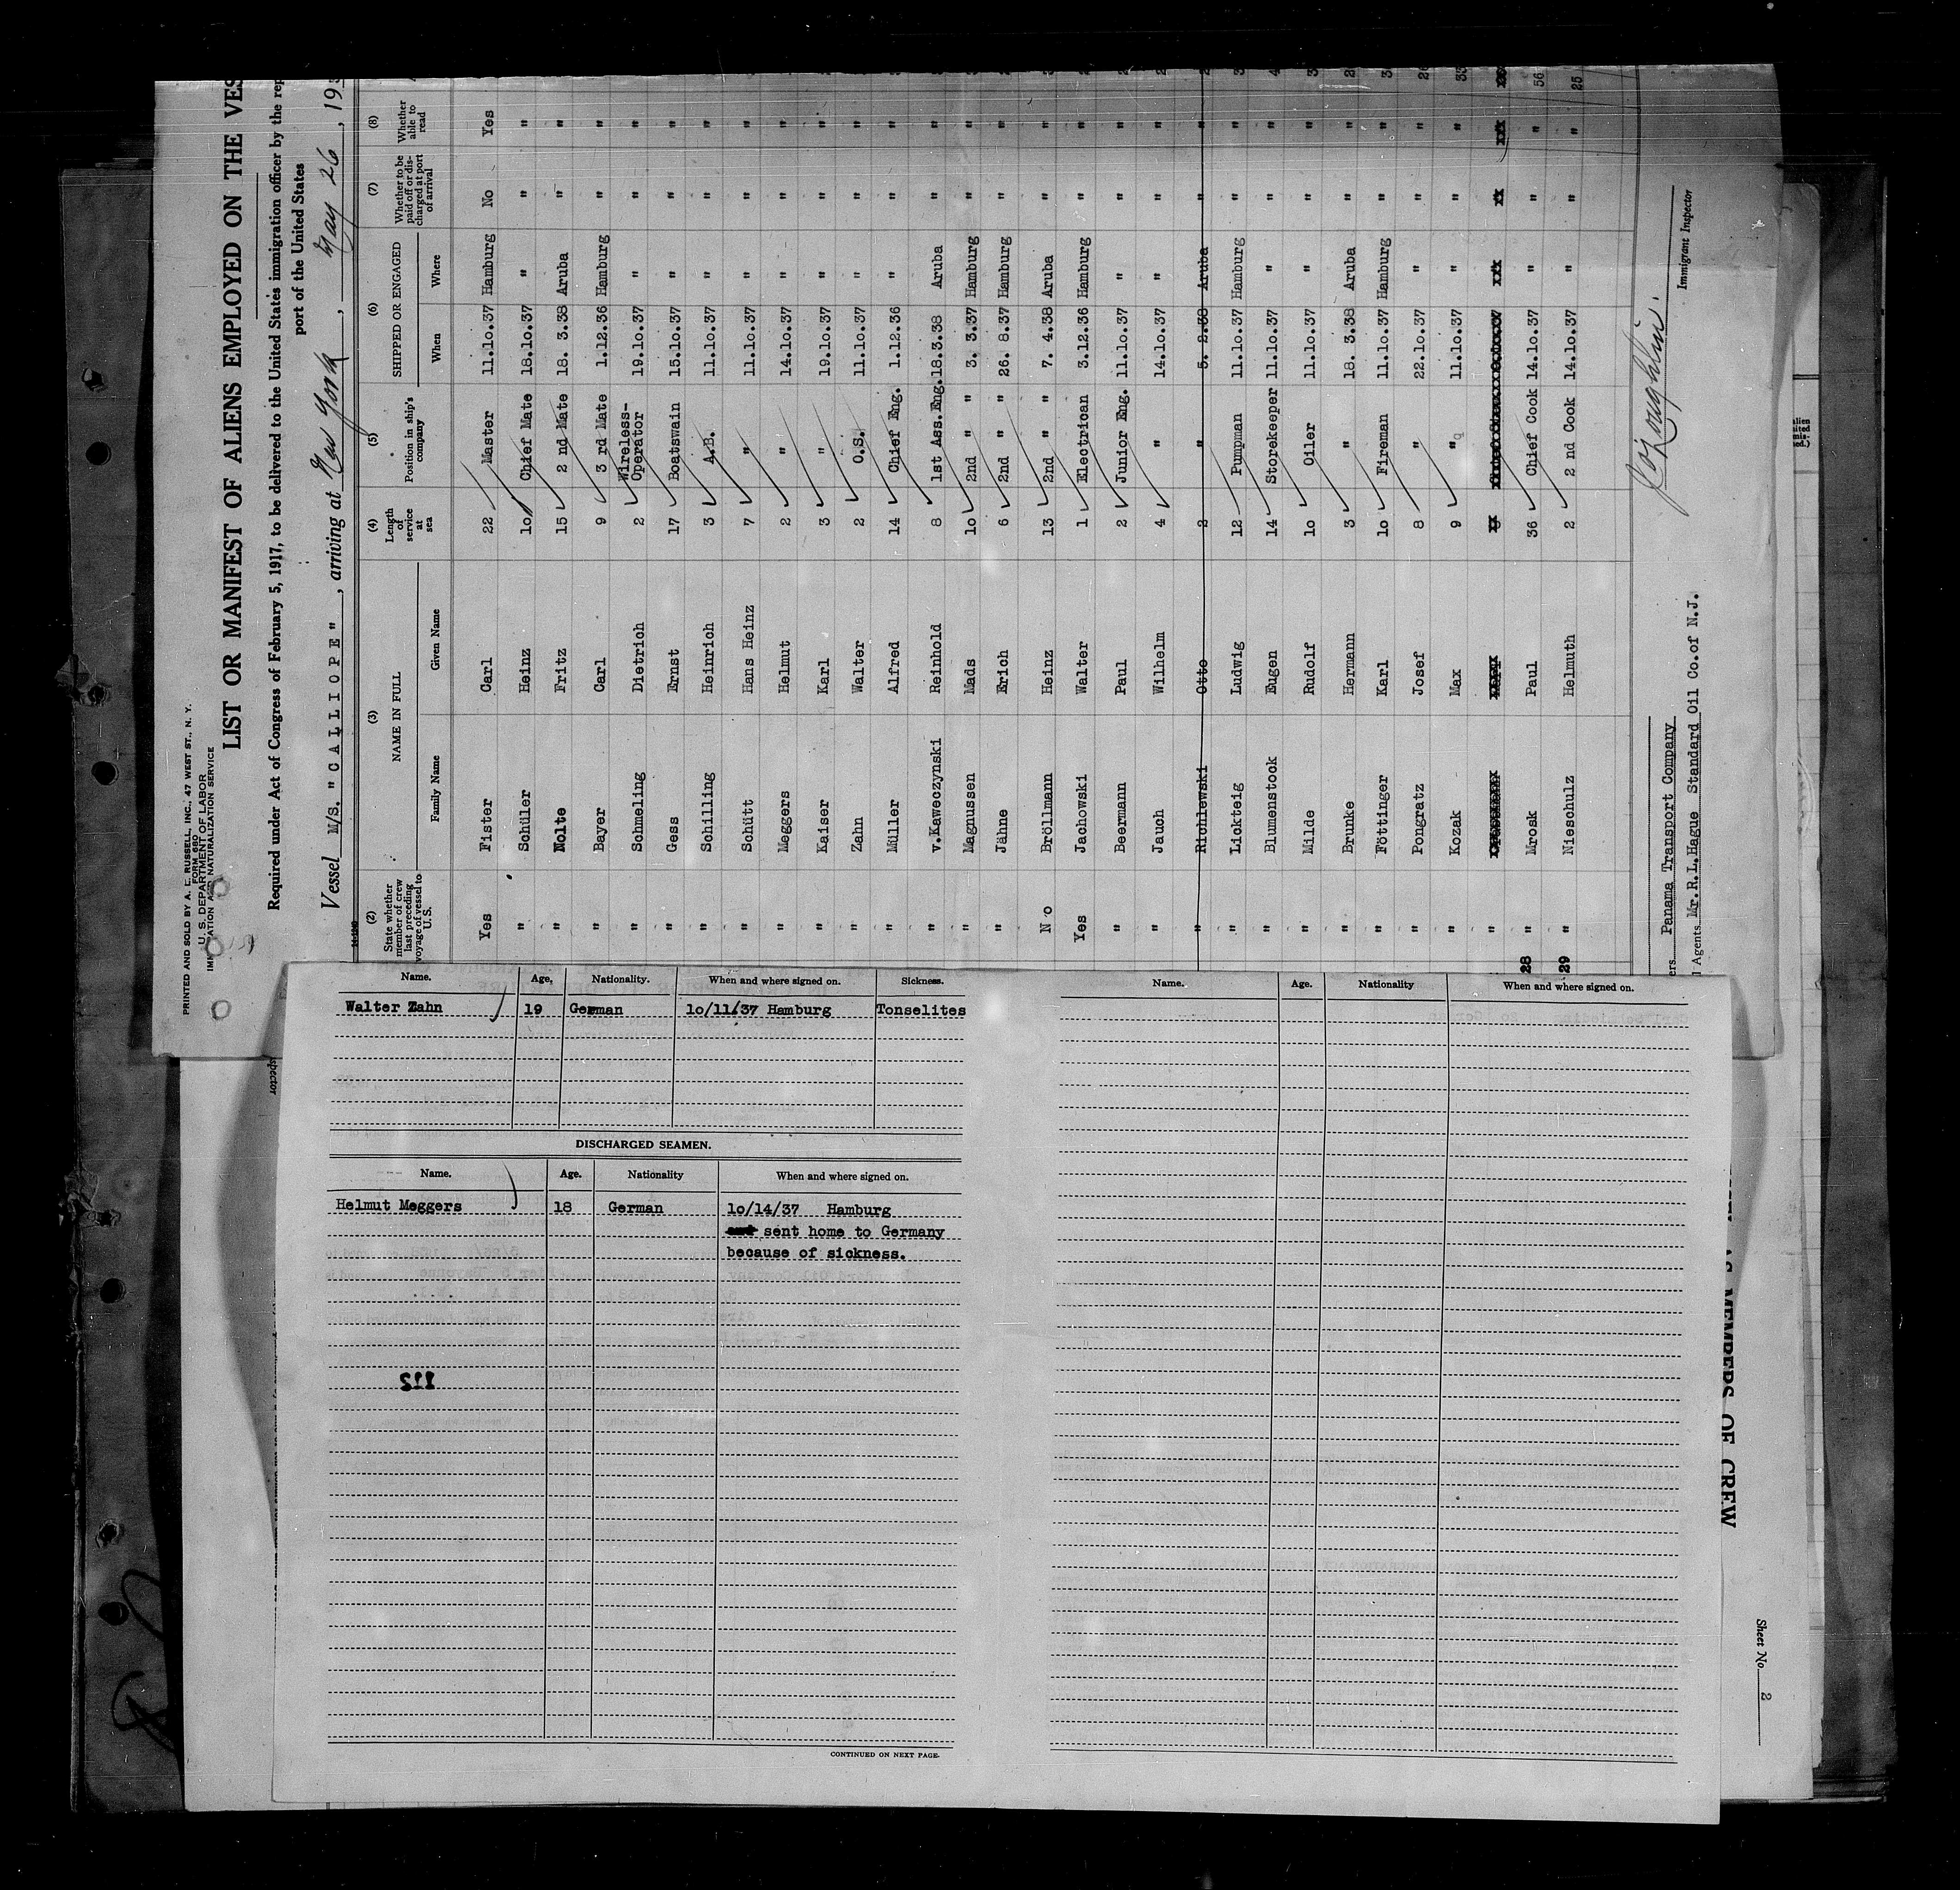 PRINTED AND SOLD BY A. E. RUSSELL, INC., 47 WEST ST., N. Y.
FORM 680
U. S. DEPARTMENT OF LABOR
IMMIGRATION AND NATURALIZATION SERVICE
LIST OR MANIFEST OF ALIENS EMPLOYED ON THE VES
Required under Act of Congress of February 5, 1917, to be delivered to the United States immigration officer by the rep
port of the United States
Vessel M/S. "CALLIOPE", arriving at New York, May 26, 19
(2) (3) (4) (5) (6) (7) (8)
State whether member of crew last preceding voyage of vessel to U. S. NAME IN FULL Length of service at sea Position in ship's company SHIPPED OR ENGAGED Whether to be paid off or discharged at port of arrival Whether able to read
Family Name Given Name When Where
Yes Fister Carl 22 Master 11.10.37 Hamburg No Yes
" Schüler Heinz 10 Chief Mate 18.10.37 " " "
" Nolte Fritz 15 2 nd Mate 18. 3.38 Aruba " "
" Bayer Carl 9 3 rd Mate 1.12.36 Hamburg " "
" Schmeling Dietrich 2 Wireless-Operator 19.10.37 " " "
" Gess Ernst 17 Boatswain 15.10.37 " " "
" Schilling Heinrich 3 A.B. 11.10.37 " " "
" Schütt Hans Heinz 7 " 11.10.37 " " "
" Meggers Helmut 2 " 14.10.37 " " "
" Kaiser Karl 3 " 19.10.37 " " "
" Zahn Walter 2 O.S. 11.10.37 " " "
" Müller Alfred 14 Chief Eng. 1.12.36 " " "
" v.Kaweczynski Reinhold 8 1st Ass.Eng. 18.3.38 Aruba " "
" Magnussen Mads 10 2nd " " 3. 3.37 Hamburg " "
" Jähne Erich 6 2nd " " 26. 8.37 Hamburg " "
No Bröllmann Heinz 13 2nd " " 7. 4.38 Aruba " "
Yes Jachowski Walter 1 Electrican 3.12.36 Hamburg " "
" Beermann Paul 2 Junior Eng. 11.10.37 " " "
" Jauch Wilhelm 4 " 14.10.37 " " "
" Richlewski Otto 2 " 5. 2.38 Aruba " "
" Lickteig Ludwig 12 Pumpman 11.10.37 Hamburg " "
" Blumenstock Eugen 14 Storekeeper 11.10.37 " " "
" Milde Rudolf 10 Oiler 11.10.37 " " "
" Brunke Hermann 3 " 18. 3.38 Aruba " "
" Föttinger Karl 10 Fireman 11.10.37 Hamburg " "
" Pongratz Josef 8 " 22.10.37 " " "
" Kozak Max 9 " 11.10.37 " " "
28 " Mrosk Paul 36 Chief Cook 14.10.37 " " " 56
29 " Nieschulz Helmuth 2 2 nd Cook 14.10.37 " " " 25
Panama Transport Company
Agents Mr.R.L.Hague Standard Oil Co.of N.J.
Immigrant Inspector
Name. Age. Nationality. When and where signed on. Sickness.
Walter Zahn 19 German 10/11/37 Hamburg Tonselites
DISCHARGED SEAMEN.
Name. Age. Nationality When and where signed on.
Helmut Meggers 18 German 10/14/37 Hamburg
sent home to Germany
because of sickness.
112
CONTINUED ON NEXT PAGE.
Name. Age. Nationality When and where signed on.
AS MEMBERS OF CREW
Sheet No. 2